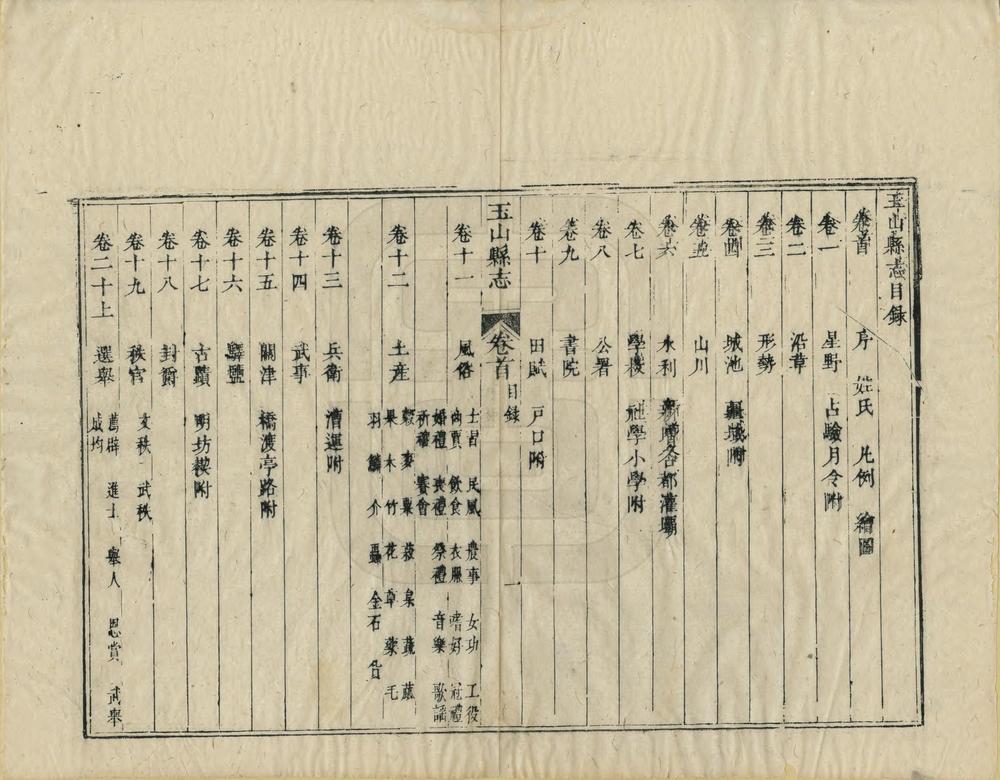 玉山縣志目録
卷首 序 姓氏 凡例 繪圖
卷一 星野 占驗月令附
卷二 沿革
卷三 形勢
卷四 城池 疆域附
卷五 山川
卷六 水利 新增各都灌壩
卷七 學校 社學小學附
卷八 公署
卷九 書院
卷十 田賦 戸口附
玉山縣志 卷首 目録 一
卷十一 風俗 士習 民風 農事 女功 工役
飲食 衣服 嗜好 冠禮
婚禮 喪禮 祭禮 音樂 歌謡
祈禳 賽會
卷十二 土産 穀 麥 粟 菽 蔬
果 木 竹 花 草 藥 毛
羽 鱗 介 蟲 金石
卷十三 兵衛 漕運附
卷十四 武事
卷十五 關津 橋渡亭路附
卷十六 驛鹽
卷十七 古蹟 明坊楔附
卷十八 封爵
卷十九 秩官 文秩 武秩
卷二十上 選舉 薦辟 進士 舉人 恩賞 武舉
成均